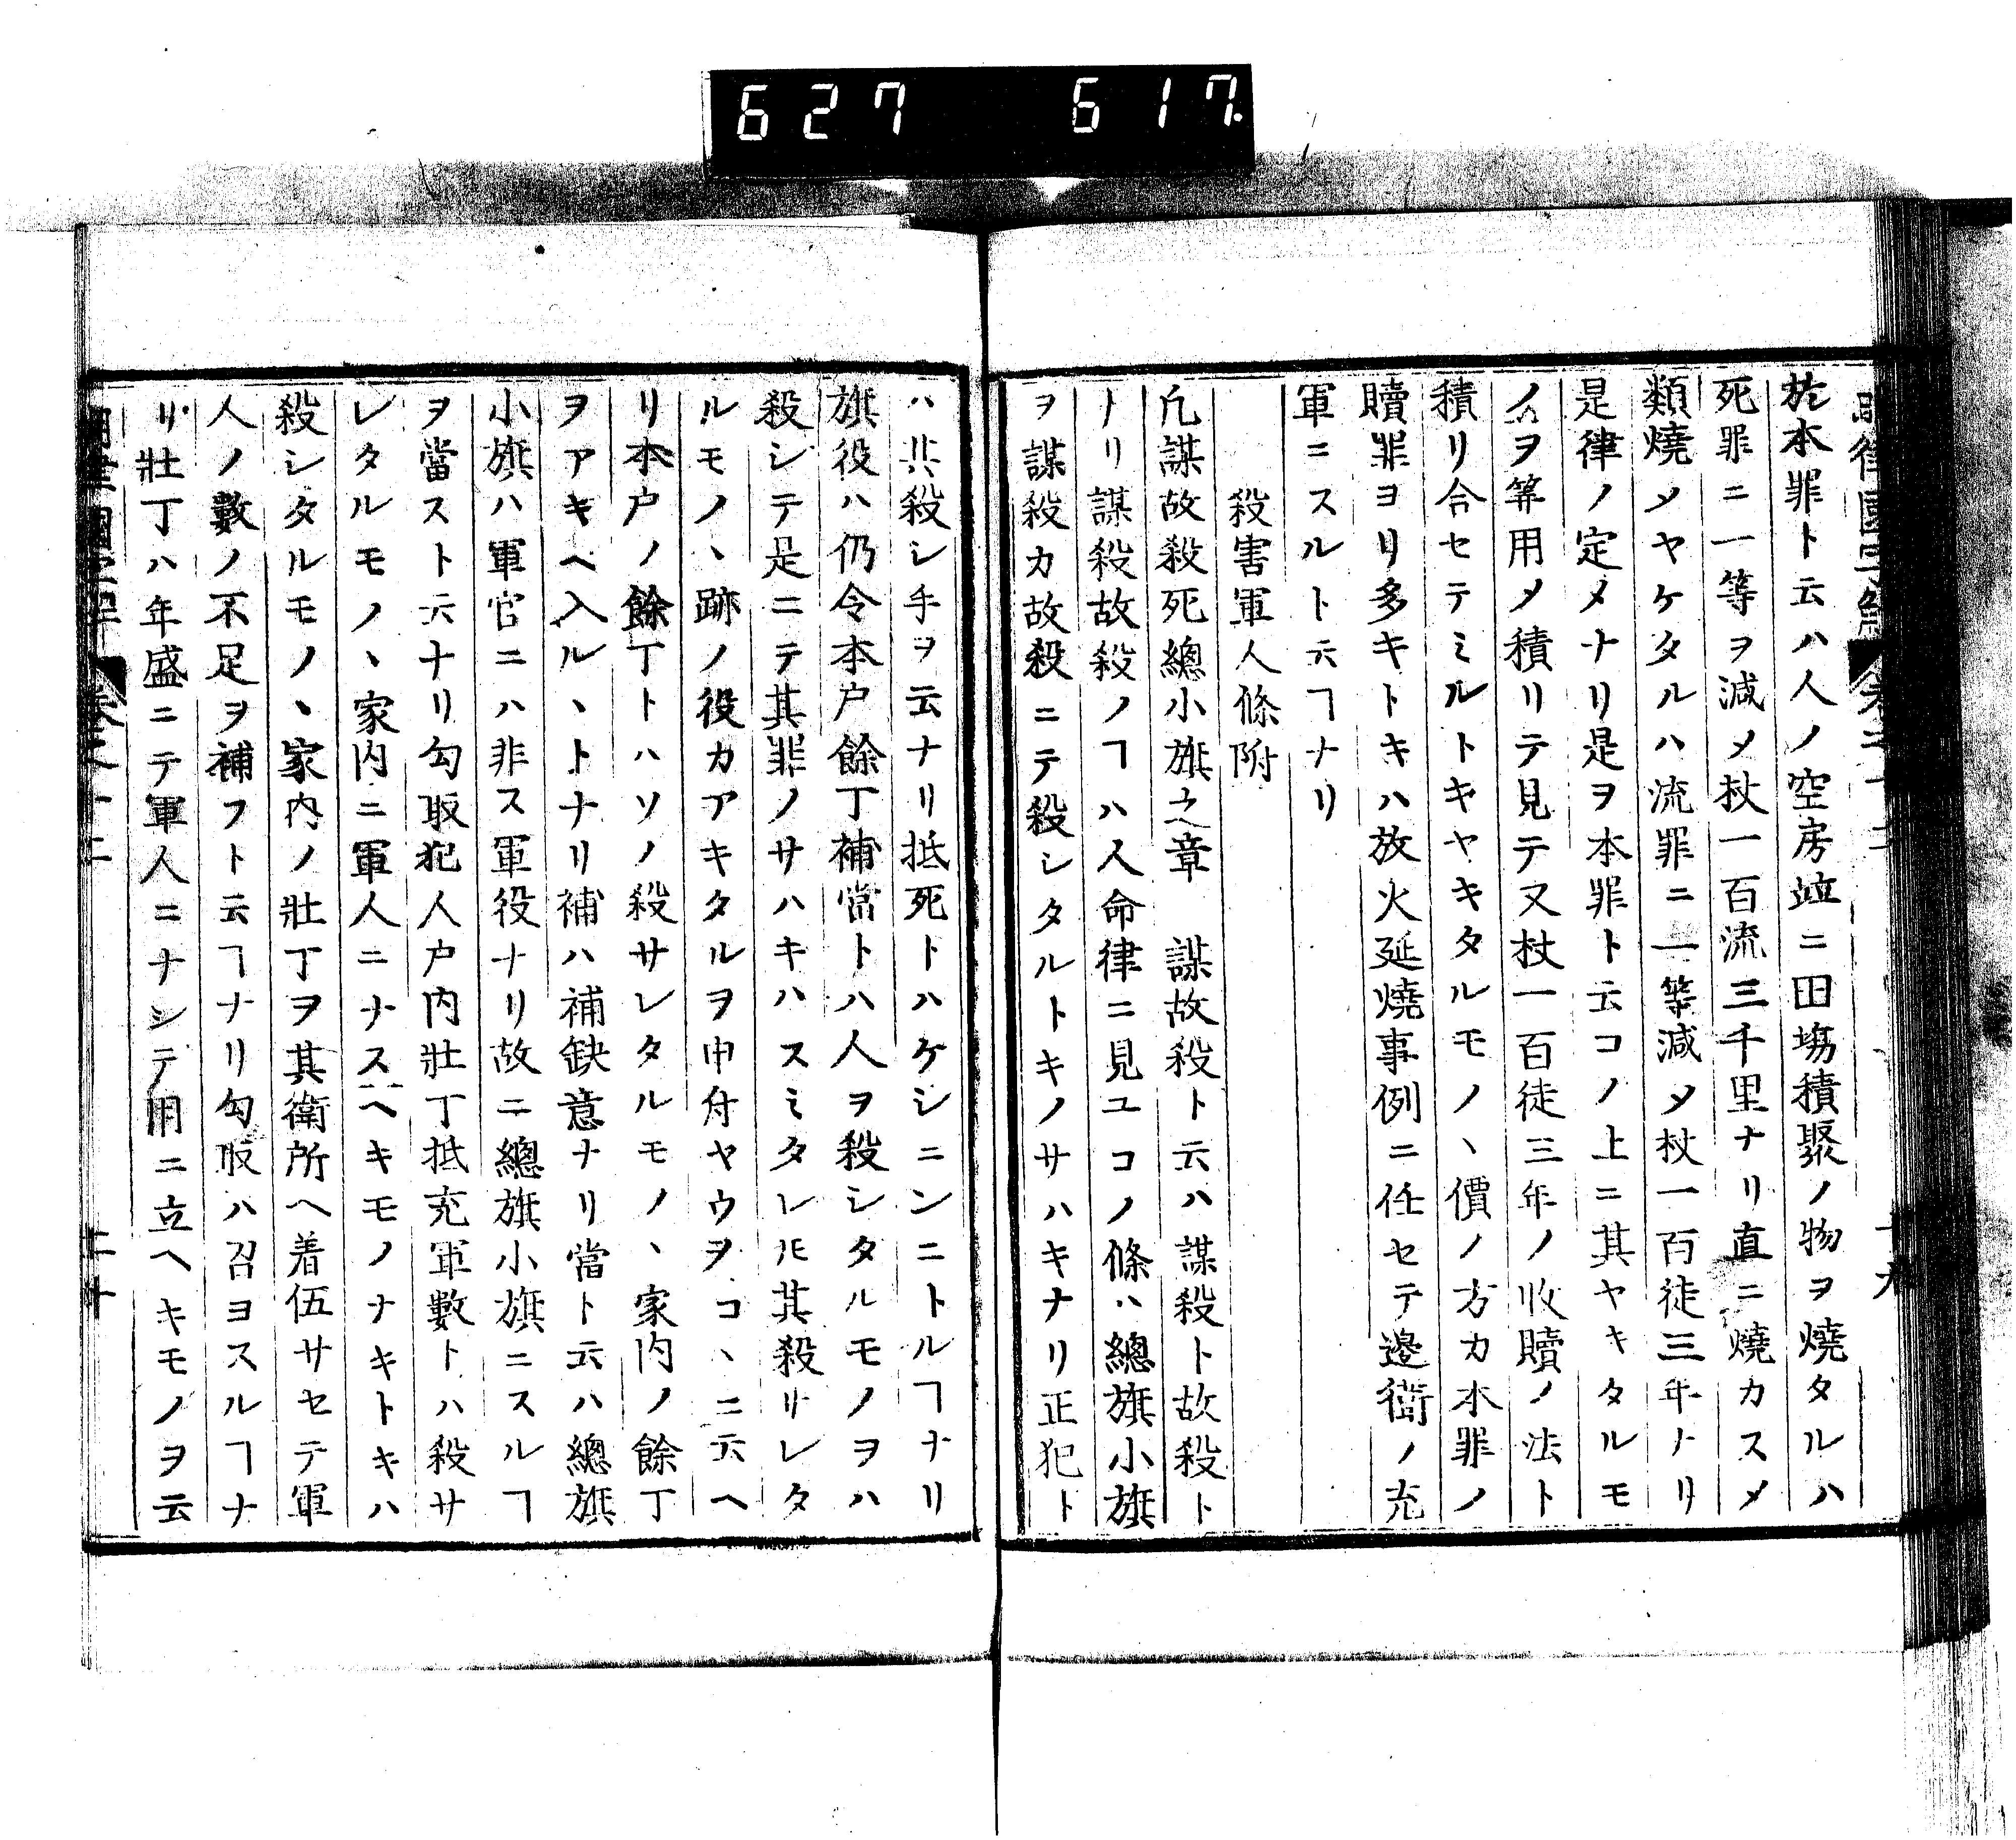 627 617
明律國字解 卷之十二 十九
於本罪ト云ハ人ノ空房竝ニ田塲積聚ノ物ヲ燒タルハ
死罪ニ一等ヲ減メ杖一百流三千里ナリ直ニ燒カスメ
類燒メヤケタルハ流罪ニ一等減メ杖一百徒三年ナリ
是律ノ定メナリ是ヲ本罪ト云コノ上ニ其ヤキタルモ
ノヲ筭用メ積リテ見テ又杖一百徒三年ノ收贖ノ法ト
積リ合セテミルトキヤキタルモノヽ價ノ方カ本罪ノ
贖罪ヨリ多キトキハ放火延燒事例ニ任セテ邊衞ノ充
軍ニスルト云ヿナリ
殺害軍人條附
凢謀故殺死總小旗之章 謀故殺ト云ハ謀殺ト故殺ト
ナリ謀殺故殺ノヿハ人命律ニ見ユコノ條ハ總旗小旗
ヲ謀殺カ故殺ニテ殺シタルトキノサハキナリ正犯ト
ハ共殺シ手ヲ云ナリ抵死トハケシニンニトルヿナリ
旗役ハ仍令本户餘丁補當トハ人ヲ殺シタルモノヲハ
殺シテ是ニテ其罪ノサハキハスミタレ𪜈其殺サレタ
ルモノヽ跡ノ役カアキタルヲ申舟ヤウヲコヽニ云ヘ
リ本户ノ餘丁トハソノ殺サレタルモノヽ家内ノ餘丁
ヲアキヘ入ルヽトナリ補ハ補缺意ナリ當ト云ハ總旗
小旗ハ軍官ニハ非ス軍役ナリ故ニ總旗小旗ニスルヿ
ヲ當スト云ナリ勾取犯人户内壯丁抵充軍數トハ殺サ
レタルモノヽ家内ニ軍人ニナスヘキモノナキトキハ
殺シタルモノヽ家内ノ壯丁ヲ其衞所ヘ着伍サセテ軍
人ノ數ノ不足ヲ補フト云ヿナリ勾取ハ召ヨスルヿナ
リ壯丁ハ年盛ニテ軍人ニナシテ用ニ立ヘキモノヲ云
明律國字解 卷之十二 二十